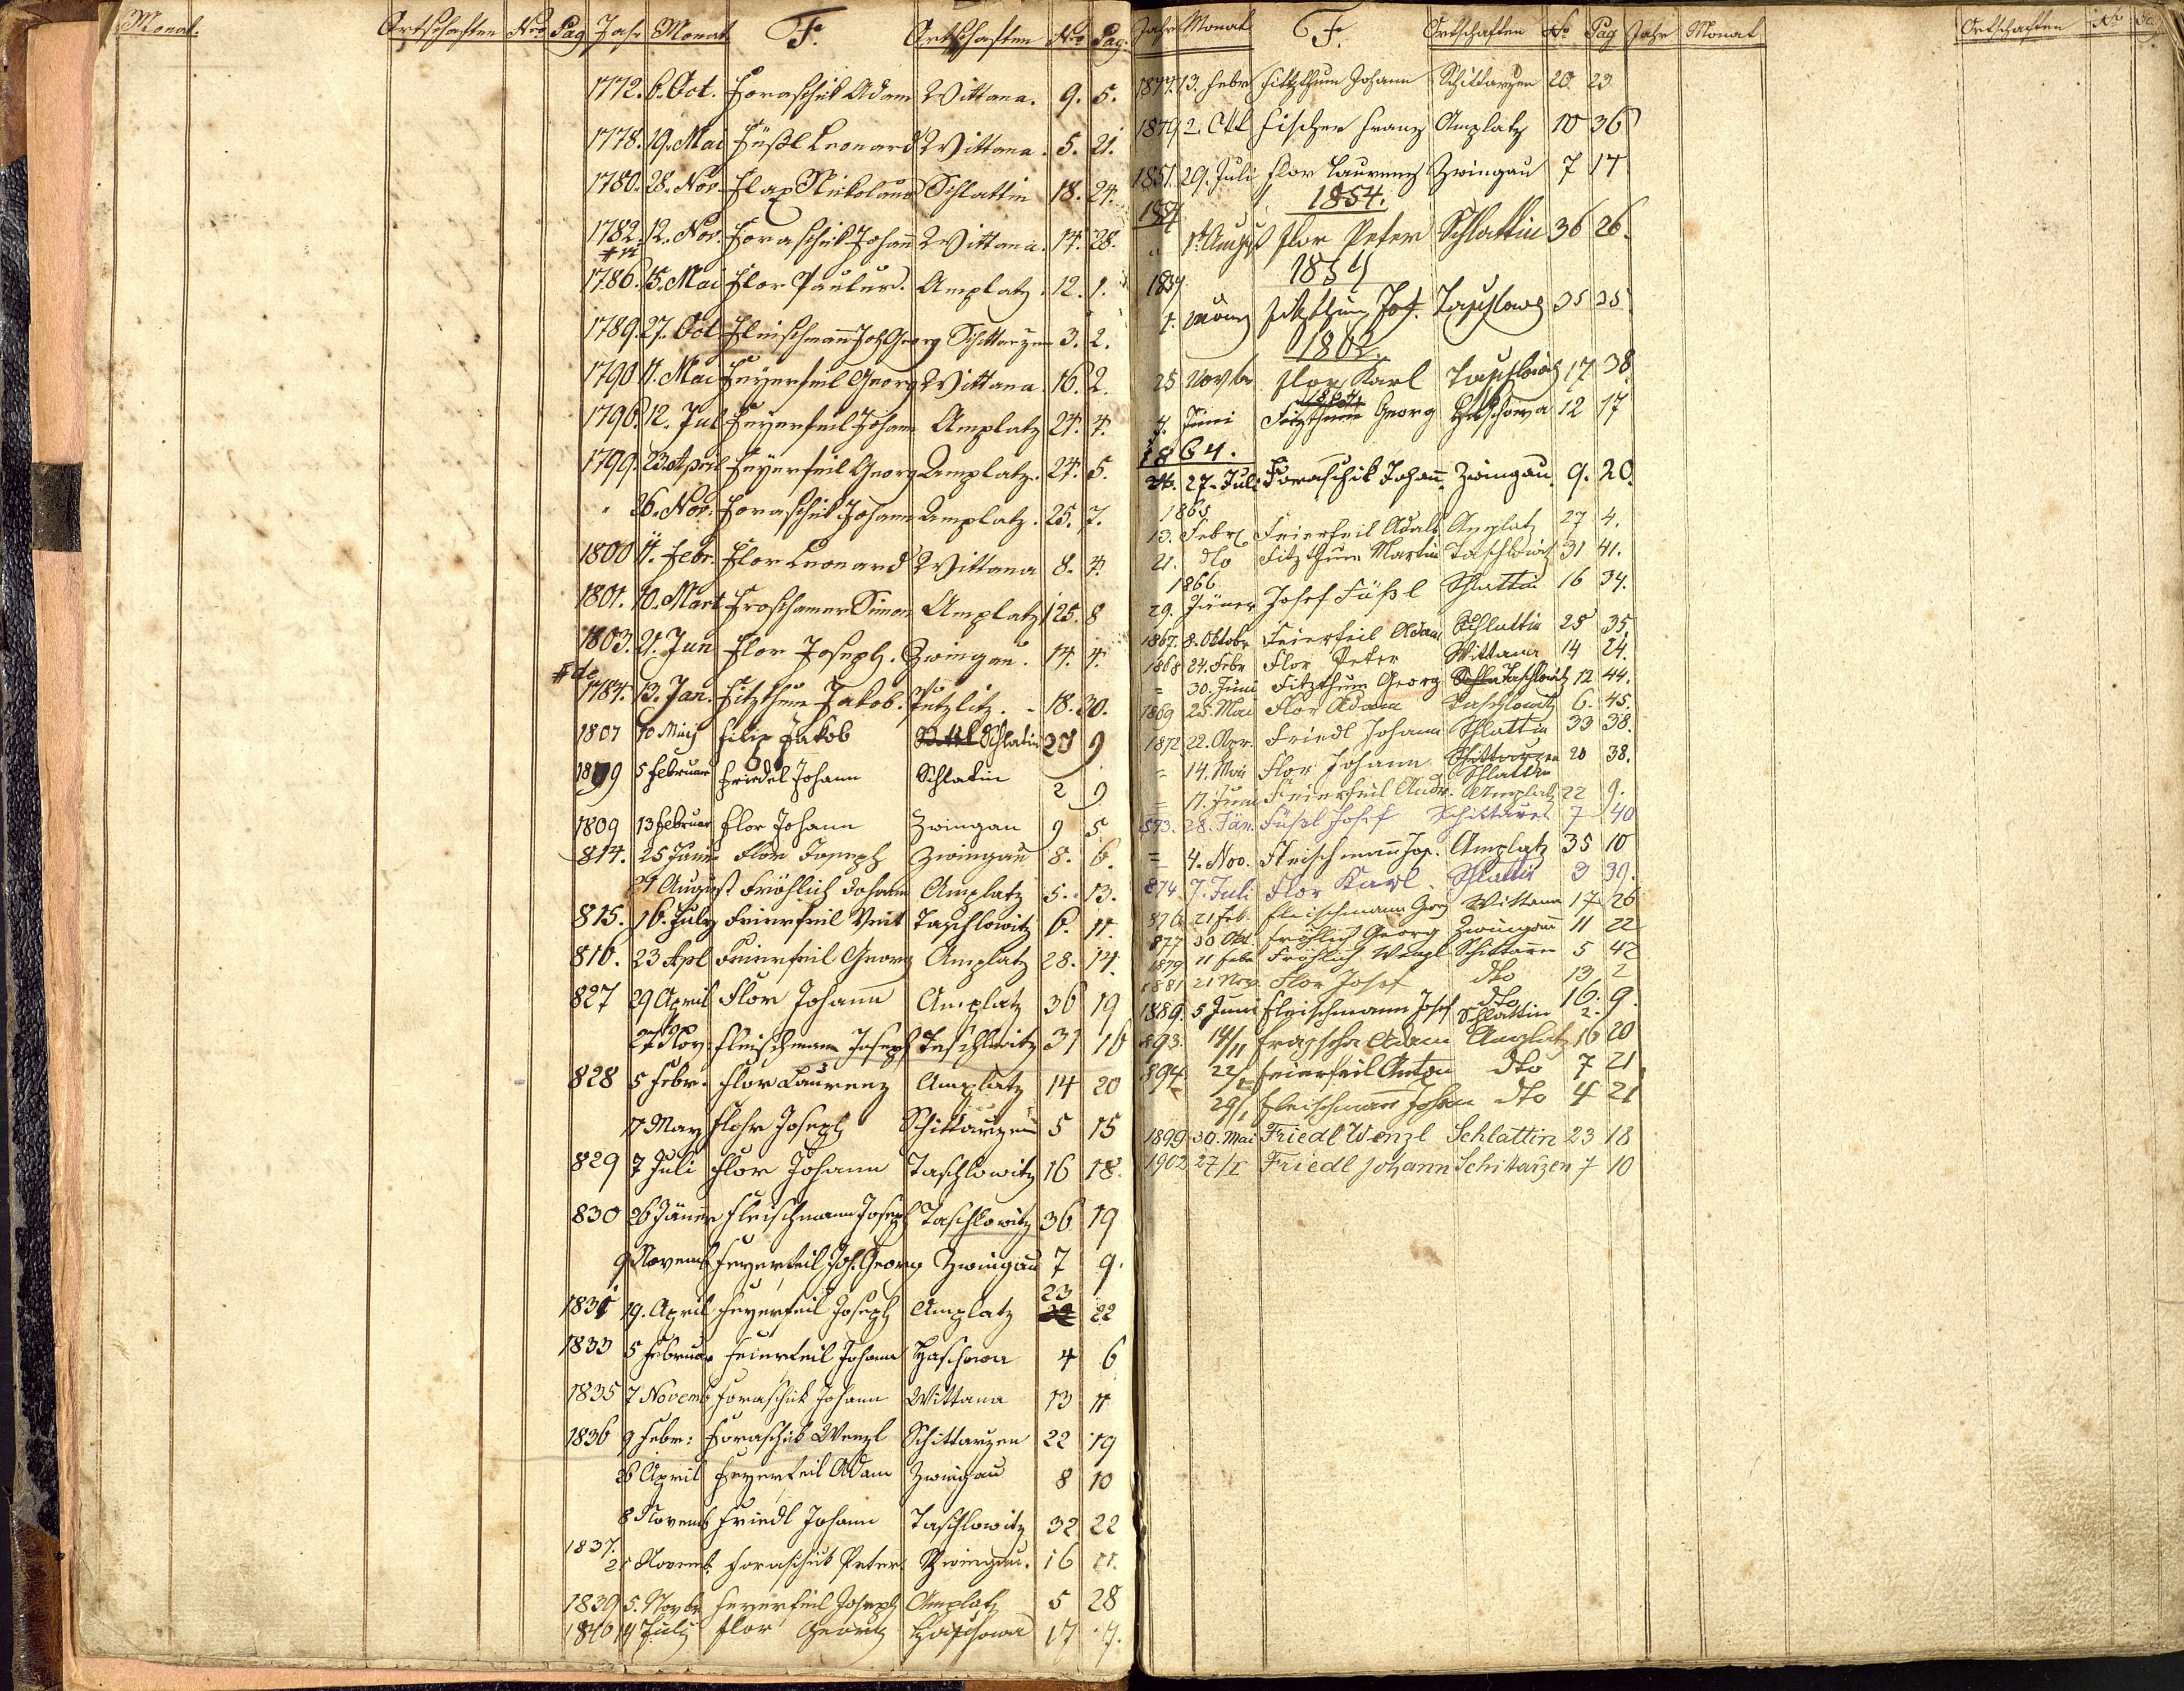 Monat. Ortschaften Nro Pag Jahr Monat F. Ortschaften Nro Pag.
1772. 6. Oct. Foraschik Adam Wittana. 9. 5.
1778. 19. Mai Füßl Leonard Wittana. 5. 21.
1780. 28. Nov. Flax Nickolaus Schlattin 18. 24.
1782. 12. Nov. Foraschik Johann Wittana. 14. 28.
1786. 15. Mai Flor Paulus. Amplatz. 12. 1.
1789. 27. Oct Fleischmann Joh Georg Schittarzen 3. 2.
1790 11. Mai Feyerfeil Georg Wittana 16. 2.
1796. 12. Jul Feyerfeil Johann Amplatz 24. 4.
1799. 23 April Feyerfeil Georg Amplatz. 24. 5.
" 26. Nov. Foraschik Johann Amplatz. 25. 7.
1800 11. Febr. Flor Leonard Wittana 8. 4.
1801. 10. Mart Froschamer Simon Amplatz 25. 8
1803. 21. Jun Flor Joseph. Zwingau. 14. 4.
1784. 13. Jan. Fitzthum Jakob. Putzlitz. - 18. 30.
1807 10 Filip Jakob Schlatin 20 9
1809 5 Februar Friedel Johann Schlatin 2 9
1809 13 Februar Flor Johann Zwingau 9 5
814. 25 Flor Joseph Zwingau 8. 6.
24 August Fröhlich Johann Amplatz 5. 13.
815. 16. July Feierfeil Veit Taschlowitz 6. 11.
816. 23 Apl Feierfeil Georg Amplatz 28. 14.
827 29 April Flor Johann Amplatz 36 19
27 Nov. Fleischmann Joseph Taschlowitz 31 16
828 5 Febr. Flor Laurenz Amplatz 14 20
17 May Flohr Joseph Schittarzen 5 15
829 7 Juli Flor Johann Taschlowitz 16 18.
830 26 Jäner Fleischmann Joseph Taschlowitz 36 19
9 Novemb Feyerfeil Joh. Georg Zwingau 7 9.
1831 19. April Feyerfeil Joseph Amplatz 23 22
1833 5 Februar Feierfeil Johann Haschowa 4 6
1835 7 Novemb Foraschik Johann Wittana 13 11
1836 9 Febr: Foraschik Wenzl Schittarzen 22 19
26 April Feyerfeil Adam Zwingau 8 10
8 Novemb Friedl Johann Taschlowitz 32 22
1837.
21 Novemb. Foraschik Peter Zwingau. 16 11.
1839 5. Novbr Feyerfeil Joseph Amplatz 5 28
1840 14 July Flor Georg Haschowa 17 7.
Jahr Monat F. Ortschaften No Pag Jahr Monat Ortschaften No
1847. 13. Febr Fitzthum Johann Schittarzen 20 23
1849 2. Okt Fischer Franz Amplatz 10 36
1851. 29. Juli Flor Laurenz Zwingau 7 14
1854.
August Flor Peter Schlattin 36 26.
Fitzthum Jos. Taschlowitz 35 35
1862.
25 Novbr Flor Karl Taschlowitz 17 38
7. Juni Fitzthum Georg Haschowa 12 17
1864.
27. Juli Foraschik Johann. Zwingau. 9. 20.
1865
13. Febr Feierfeil Adalb Amplatz 27 4.
21. dto Fitzthum Martin Taschlowitz 31 41.
1866
29. Jäner Josef Füßl Schlattin 16 34.
1867. 8. Oktobr Feierfeil Adam Schlattin 25 35.
1868 24. Febr Flor Peter Wittana 14 24.
= 30. Juni Fitzthum Georg Taschlowitz 12 44.
1869 25. Mai Flor Adam Taschlowitz 6. 45.
1872 22. Apr. Friedl Johann Schlattin 33 38.
= 14. Mai Flor Johann Schittarzen Schlattin 20 38.
= 17. Juni Feierfeil Andr. Amplatz 22 9.
873. 28. Jän. Füßl Josef Schittarzen 7 40
= 4. Nov. Fleischmann Jos. Amplatz 35 10
874. 7. Juli Flor Karl. Schlattin 3 39.
876 21 Feb. Fleischmann Georg Wittana 17 26
877 30 Okt Fröhlich Georg Zwingau 11 22
1879 11 Febr Fröhlich Wenzl Schittarzen 5 42
1881 21 Nov. Flor Josef dto 13 2
1889. 5 Juni Fleischmann Josef dto Schlattin 16. 9.
893. 14/11 Adam Amplatz 16 20
894 Feierfeil Anton dto 7 21
29/1 Fleischmann Johann dto 4 21
1899 30. Mai Friedl Wenzl Schlattin 23 18
1902 27/I Friedl Johann Schittarzen 7 10